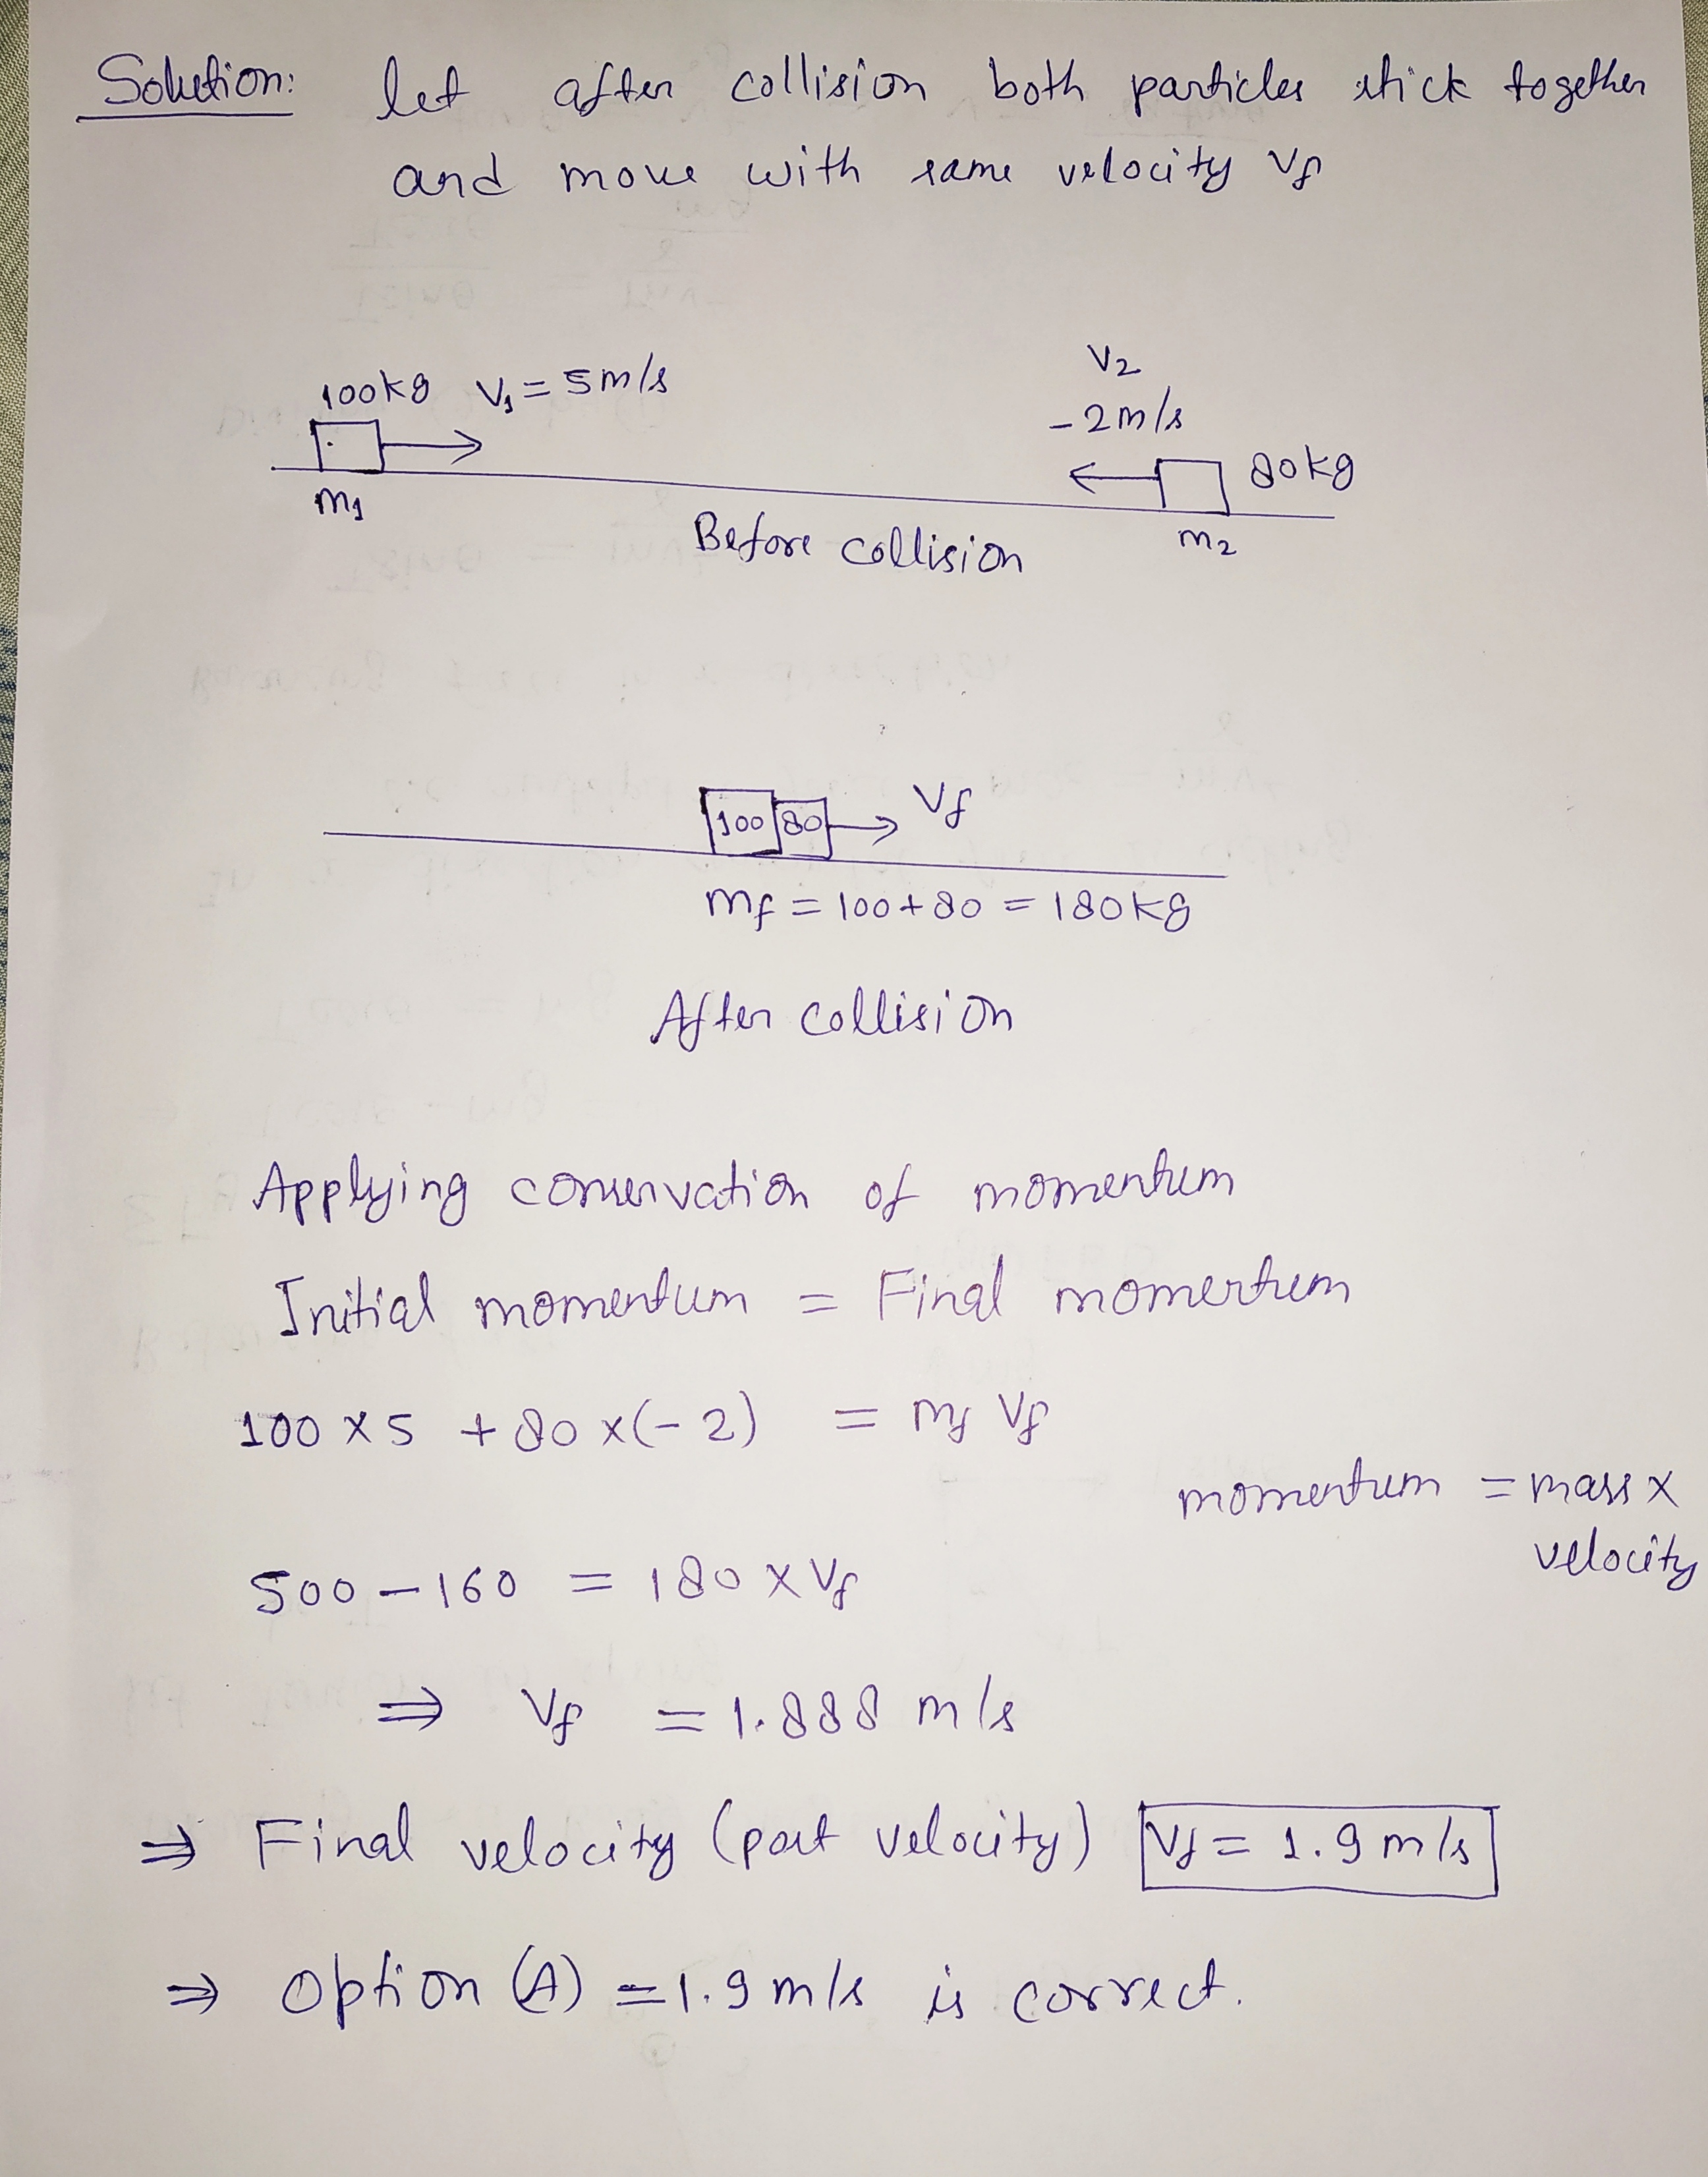 Solution: let after collision both particles stick together
and move with same velocity Vf
100kg V1 = 5m/s
V2
-2m/s
80kg
m1
m2
Before collision
100 80 Vf
mf = 100+80 = 180kg
After collision
Applying conservation of momentum
Initial momentum = Final momentum
100 x 5 + 80 x(-2) = mf Vf
momentum = mass x
velocity
500 - 160 = 180 x Vf
⇒ Vf = 1.888 m/s
⇒ Final velocity (post velocity) Vf = 1.9 m/s
⇒ Option (A) = 1.9 m/s is correct.